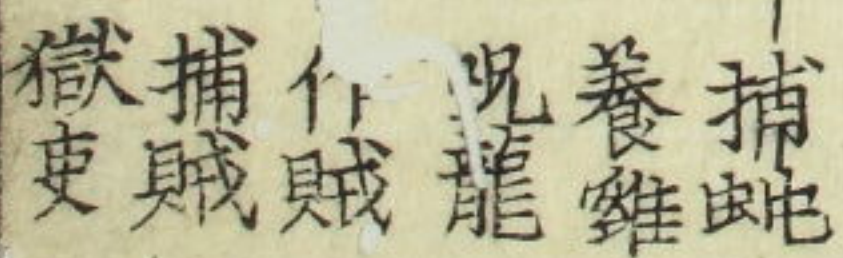 捕虵
養雞
呪龍
作賊
捕賊
獄吏